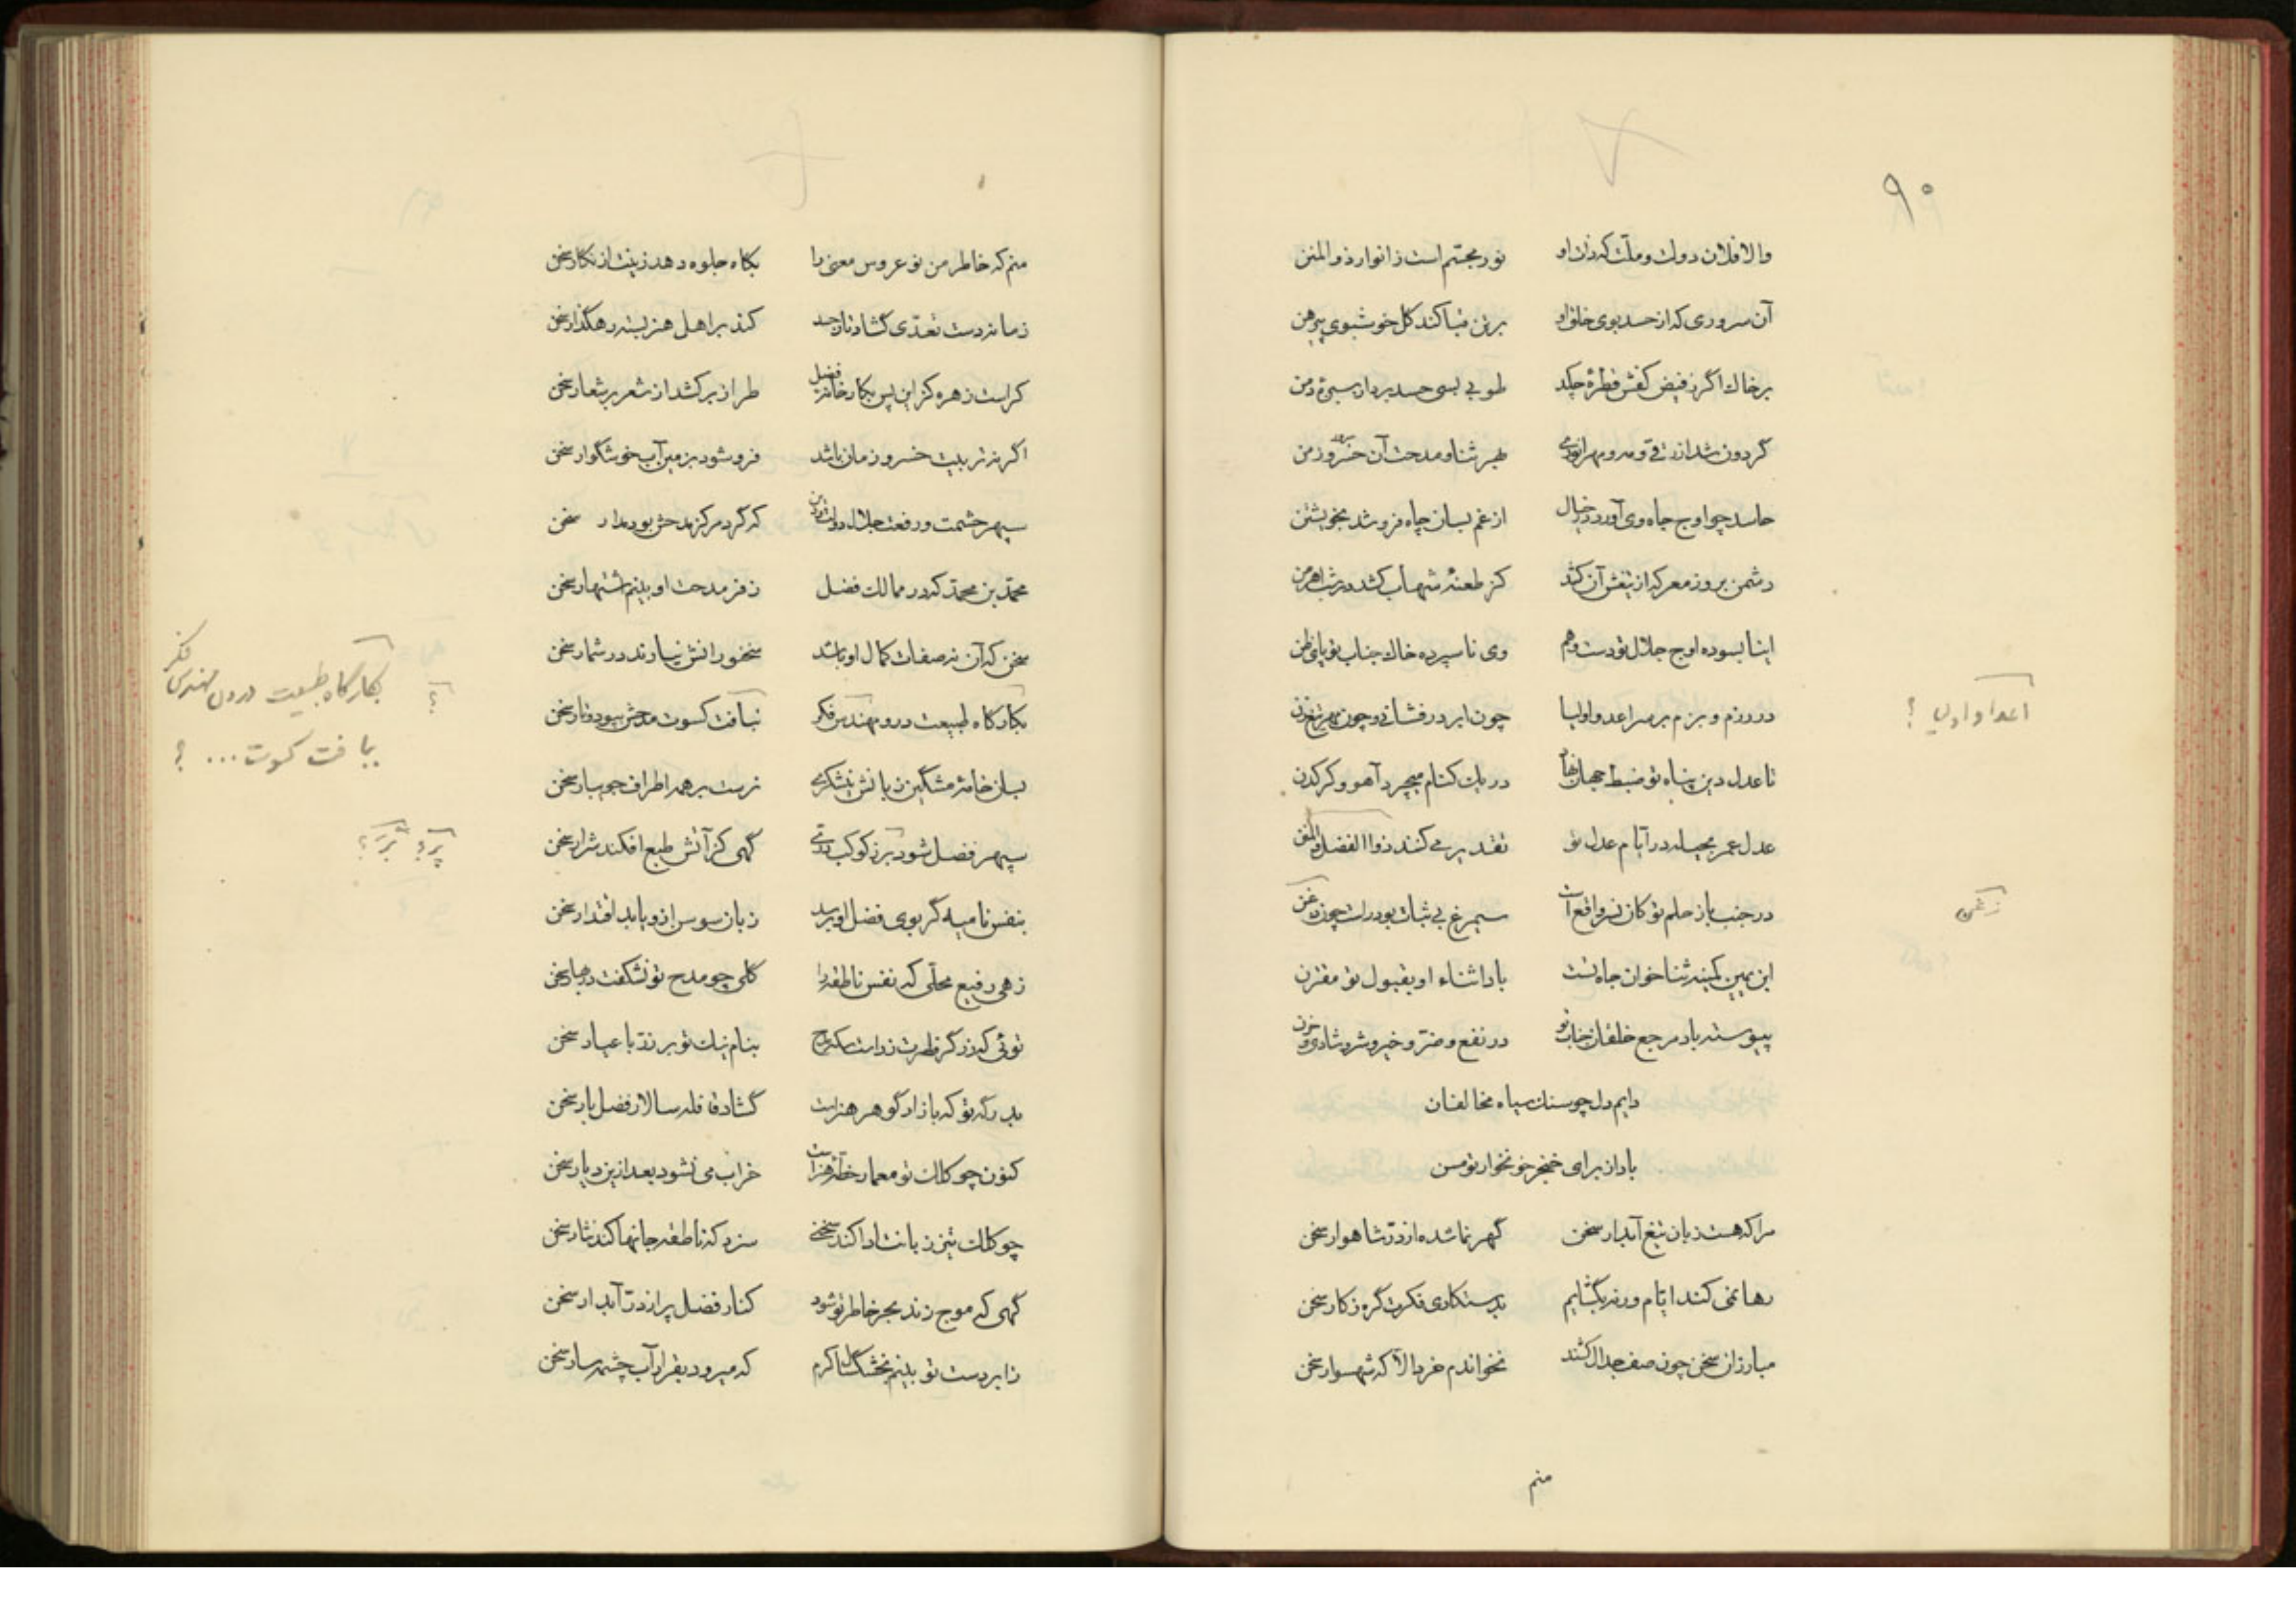 ۹۰
والا فلان دولت و ملت که ذات او نور مجسم است ز انوار ذوالمنن
آن سروری که از حسد بوی خلق او بر تن قبا کند گل خوشبوی پیرهن
بر خاک اگر ز فیض کفش قطرهٔ چکد طوبی بسی حسد برد از سبزهٔ دمن
گردون شد از ترقی و مه و مهر انوری بهر ثنا و مدحت آن خسرو زمن
حاسد چو اوج جاه وی آورد در خیال از غم بسان چاه فرو شد بخویشتن
دشمن بروز معرکه از تیغش آن کشد کز طعنهٔ شهاب کشد در شب اهرمن
ای نابسوده اوج جلال تو دست وهم وی ناسپرده خاک جناب تو پای ظن
در رزم و بزم بر سر اعدا و اولیا چون ابر درفشانی و چون مهر تیغ زن
تا عدل دین پناه تو ضبط جهان نهاد در یک کنام میچرد آهو و کرکدن
عدل عمر بحیله در ایام عدل تو تقدیر می کند ذوا الفضل والمنن
در جنب باز حلم تو کان نسر واقع است سیمرغ بی ثبات بود راست چون زغن
ابن یمین کمینه ثنا خوان جاه تست بادا ثناء او بقبول تو مقترن
پیوسته باد مرجع خلقان جناب تو در نفع و ضر و خیر و شر و شادی و حزن
دایم دل چو سنگ سیاه مخالفان
باد از برای خنجر خونخوار تو مسن
مرا که هست زبان تیغ آبدار سخن گهر نما شده از در شاهوار سخن
رها نمی کند ایام ورنه بگشایم بدستکاری فکرت گره ز کار سخن
مبارزان سخن چون صف جدال کشند نخواندم خرد الا که شهسوار سخن
منم
اعدا و اولیا ؟
زغن
منم که خاطر من نو عروس معنی را بگاه جلوه دهد زینت از نگار سخن
زمانه دست تعدی گشاد تا از حسد کند بر اهل هنر بسته رهگذار سخن
کراست زهره کز این پس بکارخانهٔ فضل طراز برکشد از شعر بر شعار سخن
اگر نه تربیت خسرو زمان باشد فرو شود بزمین آب خوشگوار سخن
سپهر حشمت و رفعت جلال دولت و دین که گرد مرکز مدحش بود مدار سخن
محمد بن محمد که در ممالک فضل ز فر مدحت او بینم اشتهار سخن
سخن که آن نه صفات کمال او باشد سخنورانش نیارند در شمار سخن
بکارگاه طبیعت درو مهندس فکر نبافت کسوت مدحش بپود و تار سخن
بسان خامهٔ مشگین زبانش نیشکری نرست بر همه اطراف جویبار سخن
سپهر فضل شود پر ز کوکب دری گهی کز آتش طبع افکند شرار سخن
بنفس نامیه گر بوی فضل او برسد زبان سوسن ازو یابد اقتدار سخن
زهی رفیع محلی که نفس ناطقه را گلی چو مدح تو نشکفت در بهار سخن
توئی که زر گر فطرت زر است بنام نیک تو بر نقد با عیار سخن
بدرگه تو که بازار گوهر هنر است گشاد قافله سالار فضل بار سخن
کنون چو کلک تو معمار خطهٔ هنر است خراب می نشود بعد ازین دیار سخن
چو کلک تیز زبانت ادا کند سخنی سزد که ناطقه جانها کند نثار سخن
گهی که موج زند بحر خاطر تو شود کنار فضل پر از در آبدار سخن
ز ابر دست تو بینم بخشگسال کرم که میرود بقرار آب چشمه سار سخن
بکارگاه طبیعت درون مهندس فکر
؟
ببافت کسوت ... ؟